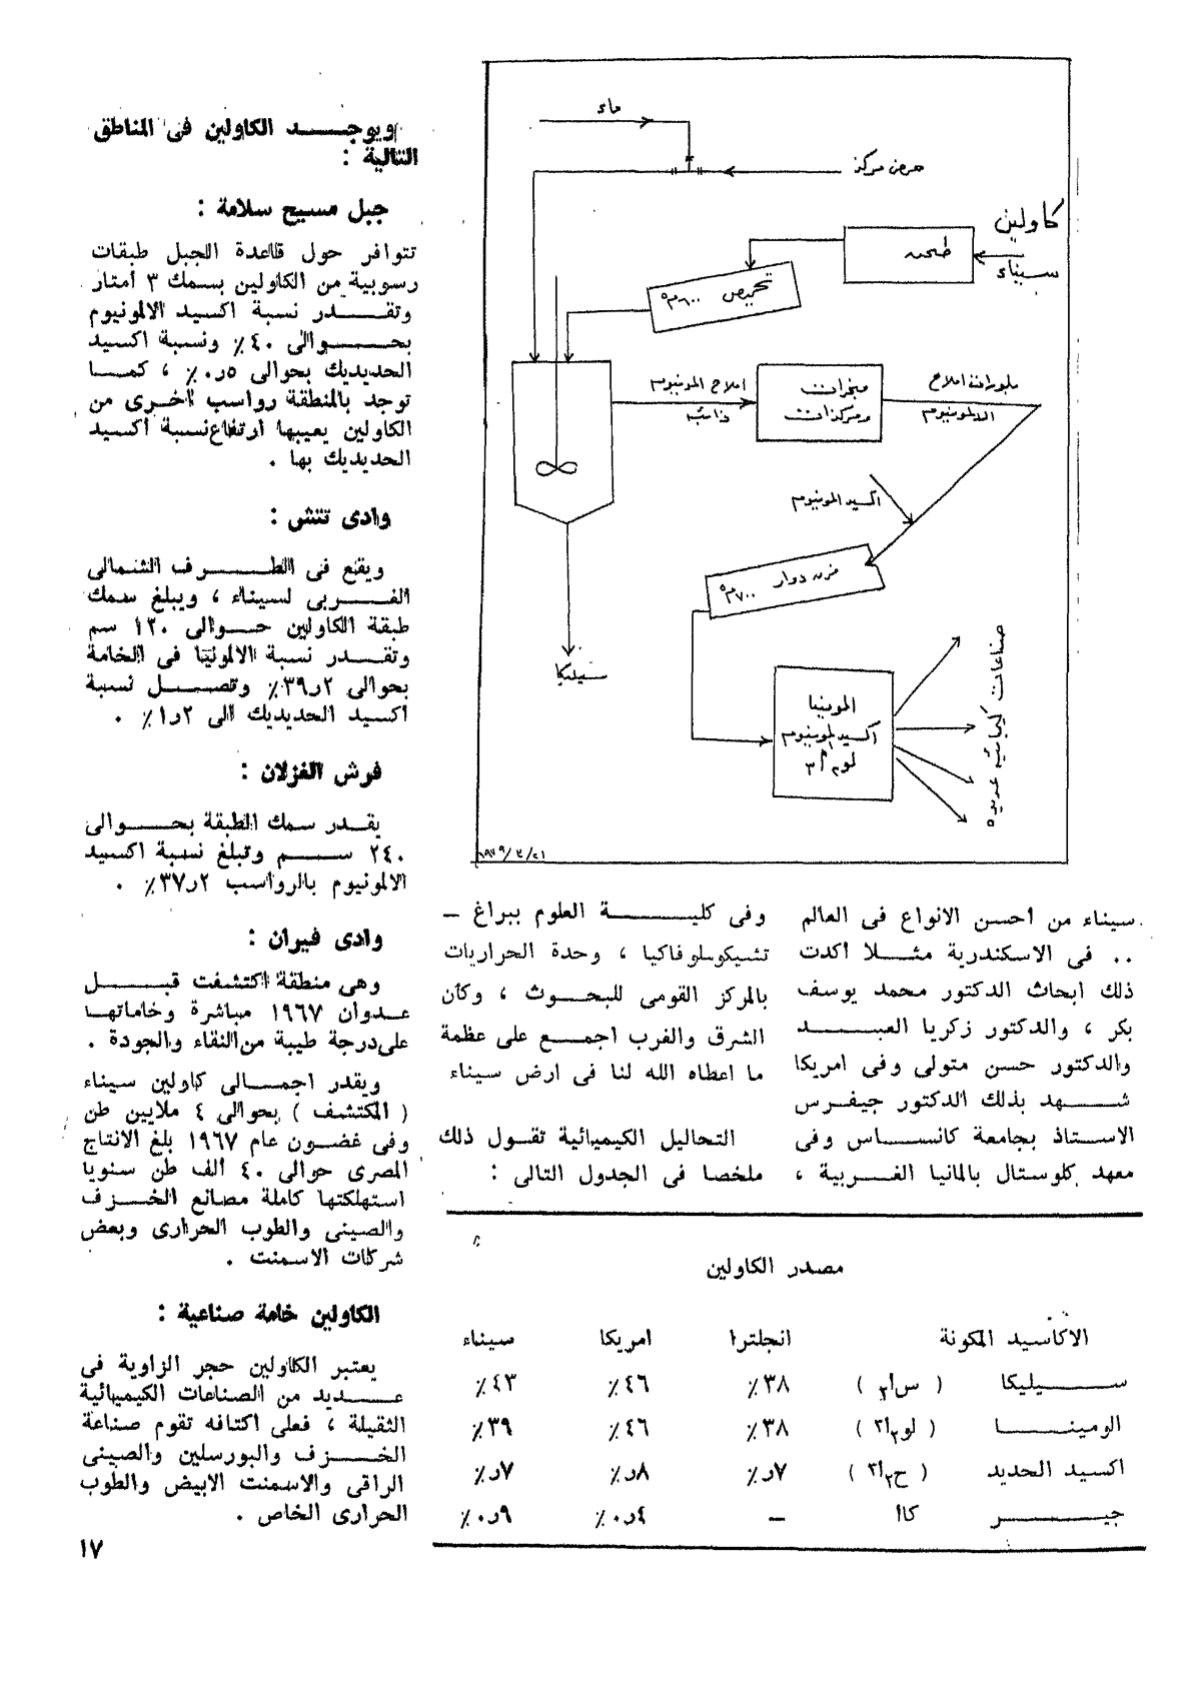 ماء
حمض مركز
كاولين
سيناء
طحن
تحميص ٦٠٠م°
املاح المونيوم
ذائبة
مبخرات
ومركزات
بلورات املاح
الالومنيوم
اكسيد المونيوم
فرن دوار ٧٠٠م°
سيليكا
الومينا
اكسيد لمونيوم
لو٢أ٣
صناعات كيميائية عديدة
سيناء من احسن الانواع فى العالم
.. فى الاسكندرية مثلا اكدت
ذلك ابحاث الدكتور محمد يوسف
بكر ، والدكتور زكريا العبد
والدكتور حسن متولى وفى امريكا
شهد بذلك الدكتور جيفرس
الاستاذ بجامعة كانساس وفى
معهد كلوستال بالمانيا الغربية ،
وفى كلية العلوم ببراغ –
تشيكوسلوفاكيا ، وحدة الحراريات
بالمركز القومى للبحوث ، وكأن
الشرق والغرب اجمع على عظمة
ما اعطاه الله لنا فى ارض سيناء
التحاليل الكيميائية تقول ذلك
ملخصا فى الجدول التالى :
مصدر الكاولين
الاكاسيد المكونة انجلترا امريكا سيناء
سيليكا ( س٢أ ) ٣٨٪ ٤٦٪ ٤٣٪
الومينا ( لو٢أ٣ ) ٣٨٪ ٤٦٪ ٣٩٪
اكسيد الحديد ( ح٢أ٣ ) ٧ر٪ ٨ر٪ ٧ر٪
جير كاأ – ٤ر٠٪ ٩ر٠٪
ويوجد الكاولين فى المناطق
التالية :
جبل مسيح سلامة :
تتوافر حول قاعدة الجبل طبقات
رسوبية من الكاولين بسمك ٣ أمتار
وتقدر نسبة اكسيد الالومنيوم
بحوالى ٤٠٪ ونسبة اكسيد
الحديديك بحوالى ٥ر٠٪ ، كما
توجد بالمنطقة رواسب اخرى من
الكاولين يعيبها ارتفاع نسبة أكسيد
الحديديك بها .
وادى تتش :
ويقع فى الطرف الشمالى
الغربى لسيناء ، ويبلغ سمك
طبقة الكاولين حوالى ١٢٠ سم
وتقدر نسبة الالومنيا فى الخامة
بحوالى ٢ر٣٩٪ وتصل نسبة
اكسيد الحديديك الى ٢ر١٪ .
فرش الغزلان :
يقدر سمك الطبقة بحوالى
٢٤٠ سم وتبلغ نسبة اكسيد
الالومنيوم بالرواسب ٢ر٣٧٪ .
وادى فيران :
وهى منطقة اكتشفت قبل
عدوان ١٩٦٧ مباشرة وخاماتها
على درجة طيبة من النقاء والجودة .
ويقدر اجمالى كاولين سيناء
( المكتشف ) بحوالى ٤ ملايين طن
وفى غضون عام ١٩٦٧ بلغ الانتاج
المصرى حوالى ٤٠ الف طن سنويا
استهلكتها كاملة مصانع الخزف
والصينى والطوب الحرارى وبعض
شركات الاسمنت .
الكاولين خامة صناعية :
يعتبر الكاولين حجر الزاوية فى
عديد من الصناعات الكيميائية
الثقيلة ، فعلى اكتافه تقوم صناعة
الخزف والبورسلين والصينى
الراقى والاسمنت الابيض والطوب
الحرارى الخاص .
١٧